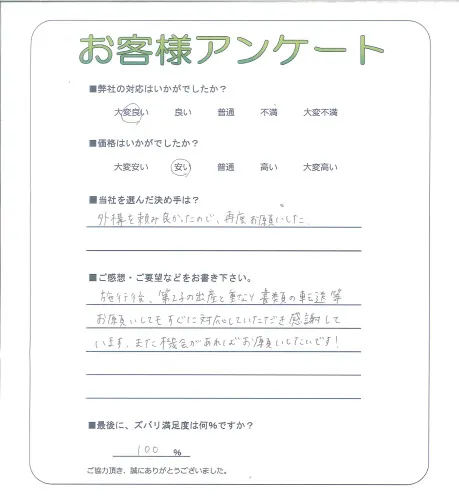 お客様アンケート
■弊社の対応はいかがでしたか?
大変良い 良い 普通 不満 大変不満
■価格はいかがでしたか?
大変安い 安い 普通 高い 大変高い
■当社を選んだ決め手は?
外構を頼み良かったので、再度お願いした。
■ご感想・ご要望などをお書き下さい。
施行後、第2子の出産と重なり書類の転送等
お願いしてもすぐに対応していただき感謝して
います。また機会があればお願いしたいです!
■最後に、ズバリ満足度は何%ですか?
100 %
ご協力頂き、誠にありがとうございました。